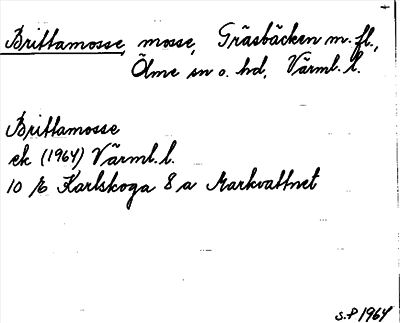 Brittamosse, mosse, Gräsbäcken m. fl.,
Ölme sn o. hd, Värml. l.
Brittamosse
ek (1964) Värml. l.
10 E Karlskoga 8 a Markvattnet
S.P 1964